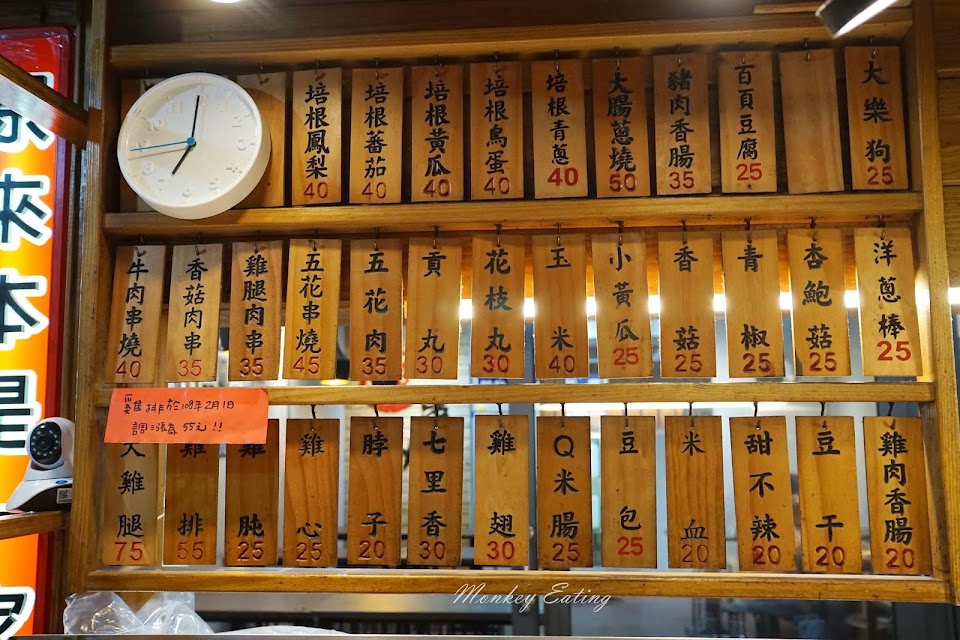 培根鳳梨 40
培根蕃茄 40
培根黃瓜 40
培根鳥蛋 40
培根青蔥 40
大腸蔥燒 50
豬肉香腸 35
百頁豆腐 25
大樂狗 25
牛肉串燒 40
香菇肉串 35
雞腿肉串 35
五花串燒 45
五花肉 35
貢丸 30
花枝丸 30
玉米 40
小黃瓜 25
香菇 25
青椒 25
杏鮑菇 25
洋蔥棒 25
雞排於108年2月1日
調漲為 55元!!
大雞腿 75
雞排 55
雞肫 25
雞心 25
脖子 20
七里香 30
雞翅 30
Q米腸 25
豆包 25
米血 20
甜不辣 20
豆干 20
雞肉香腸 20
來本
Monkey Eating